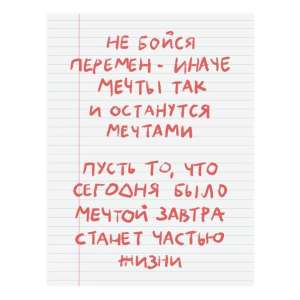 НЕ БОЙСЯ
ПЕРЕМЕН - ИНАЧЕ
МЕЧТЫ ТАК
И ОСТАНУТСЯ
МЕЧТАМИ
ПУСТЬ ТО, ЧТО
СЕГОДНЯ БЫЛО
МЕЧТОЙ ЗАВТРА
СТАНЕТ ЧАСТЬЮ
ЖИЗНИ